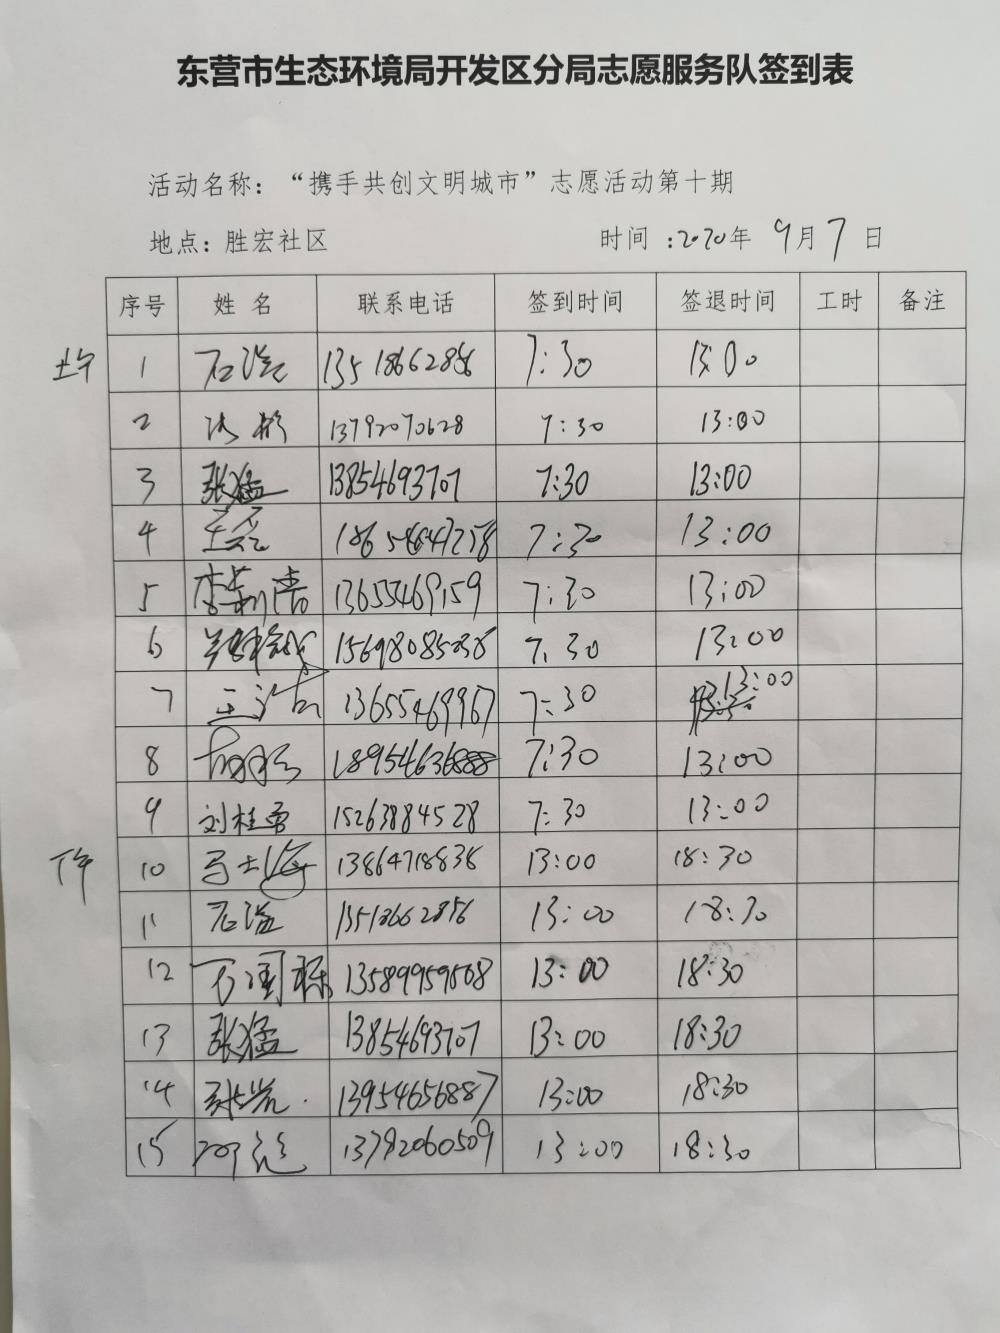 东营市生态环境局开发区分局志愿服务队签到表
活动名称：“携手共创文明城市”志愿活动第十期
地点：胜宏社区 时间：2020年 9月7日
序号 姓名 联系电话 签到时间 签退时间 工时 备注
上午 1 石溢 13518662856 7:30 13:00
2 13792070628 7:30 13:00
3 张猛 13854693707 7:30 13:00
4 王磊 18654647258 7:30 13:00
5 李新浩 13655469159 7:30 13:00
6 7:30 13:00
7 13655469967 7:30 13:00
8 7:30 13:00
9 刘桂勇 15263884528 7:30 13:00
下午 10 马士海 13864718838 13:00 18:30
11 石溢 13518662856 13:00 18:30
12 万国栋 13589959508 13:00 18:30
13 张猛 13854693707 13:00 18:30
14 13954656887 13:00 18:30
15 13782060509 13:00 18:30